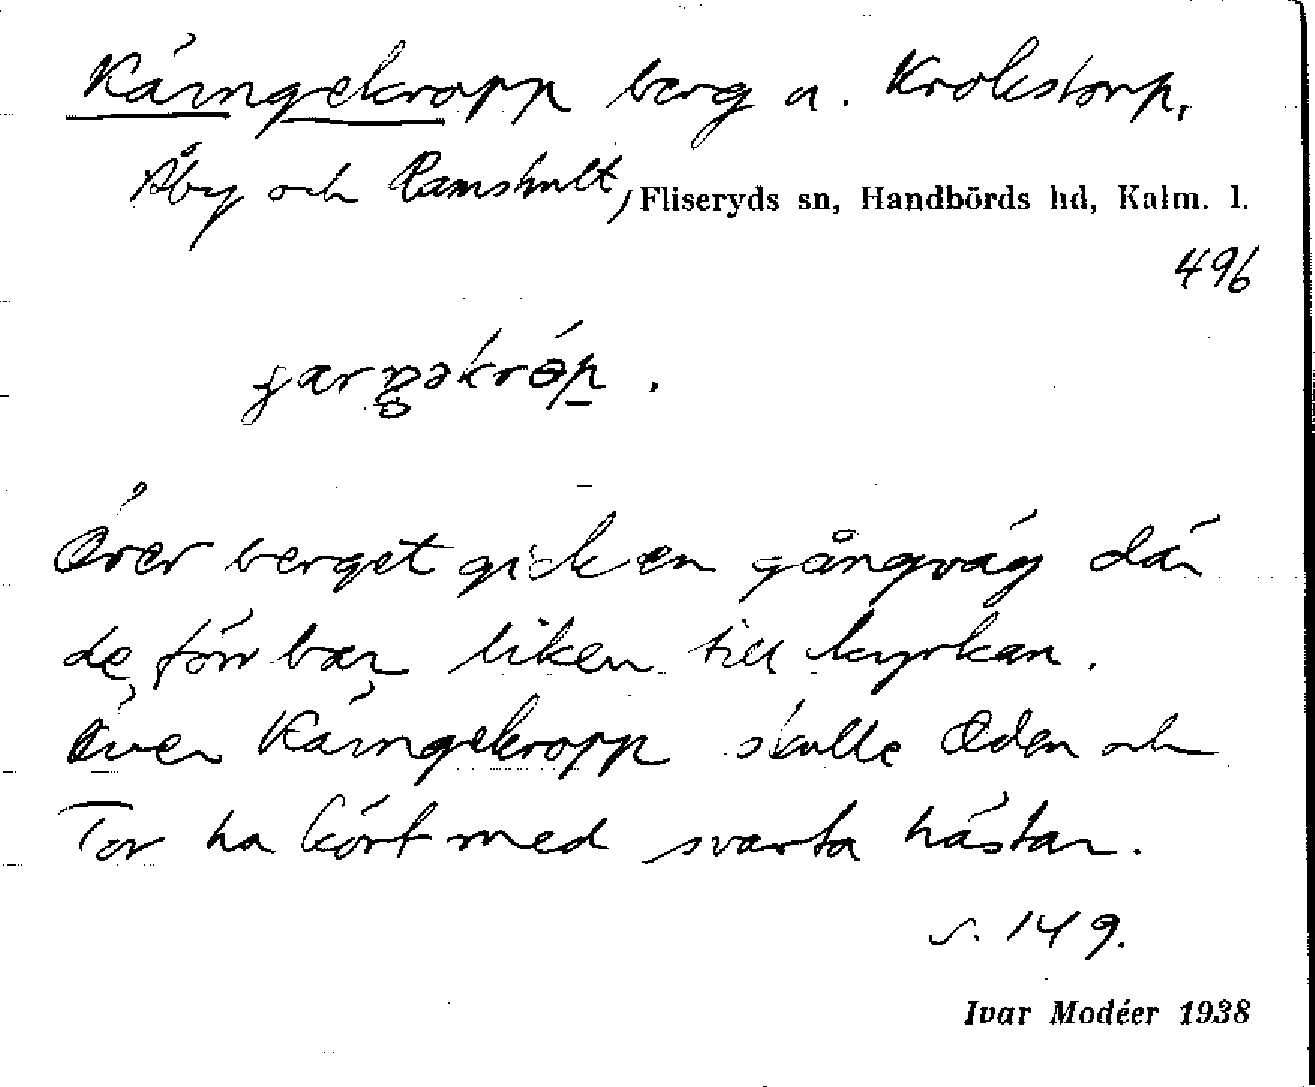 Kärngekropp berg a. Krokstorp,
Åby och Ramshult, Fliseryds sn, Handbörds hd, Kalm. l.
496
Över berget gick en gångväg där
de förr bar liken till kyrkan.
Över Kärngekropp skulle Oden och
Tor ha kört med svarta hästar.
s. 149.
Ivar Modéer 1938